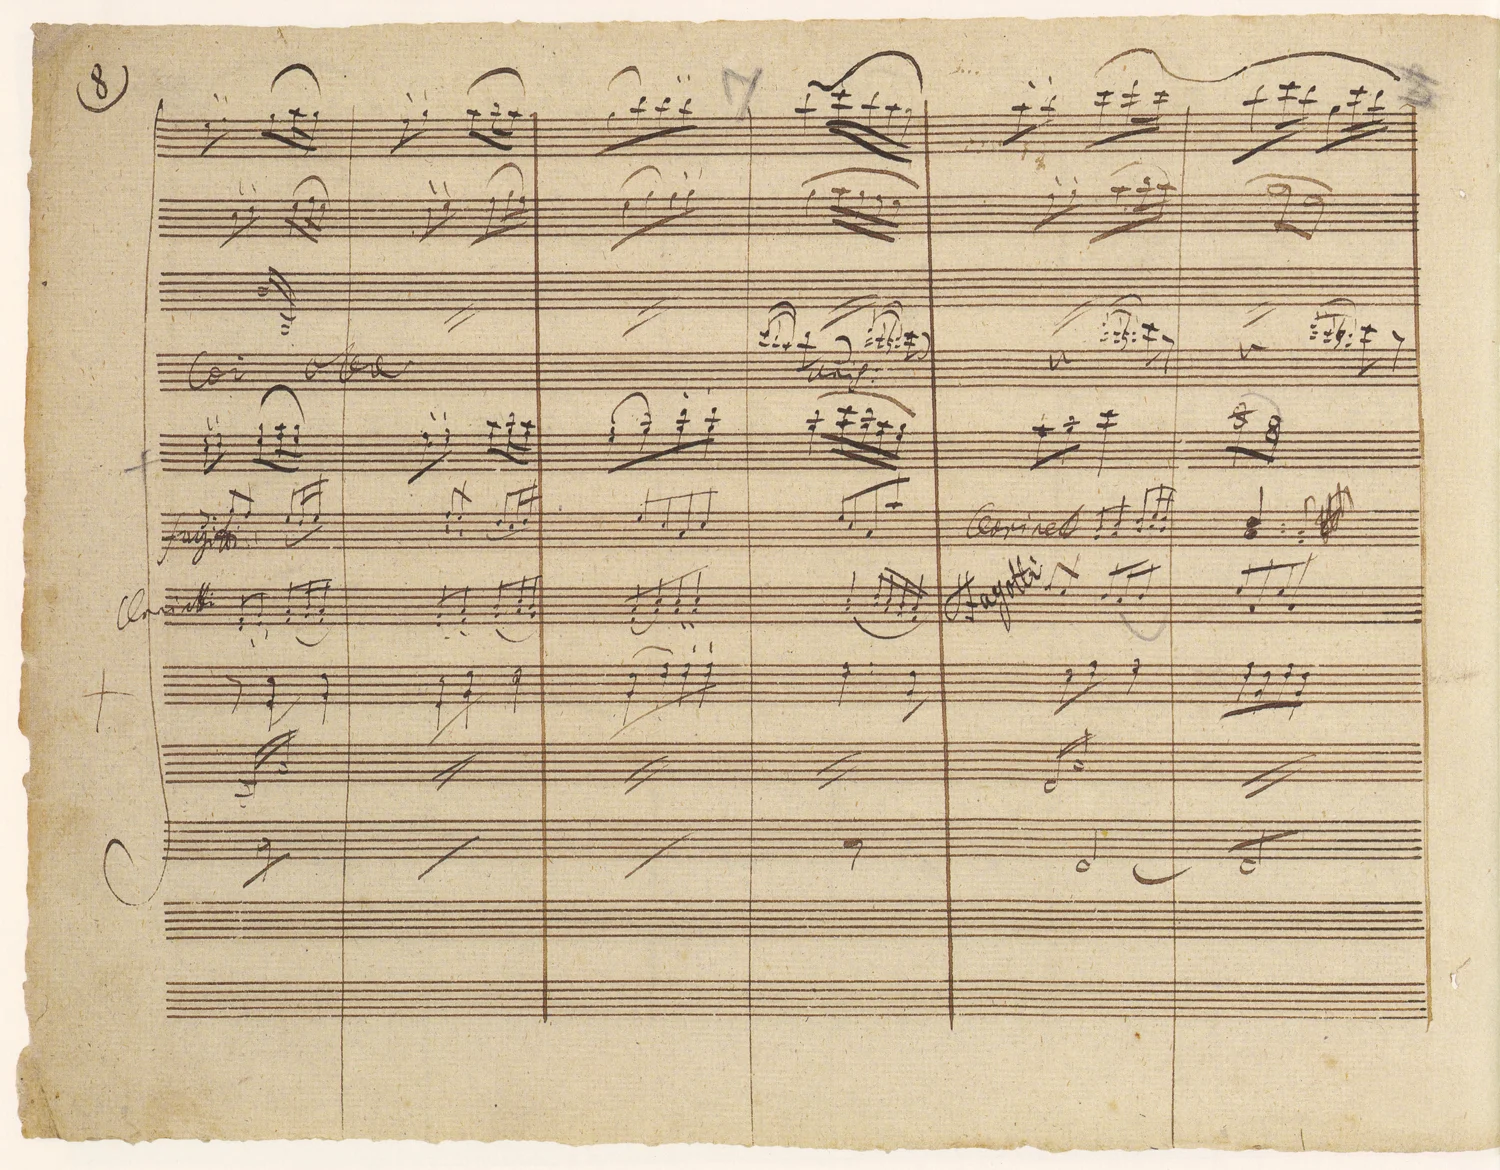 8
Coi oboe
unis:
Clarinet
Fagotti
Clarinetti